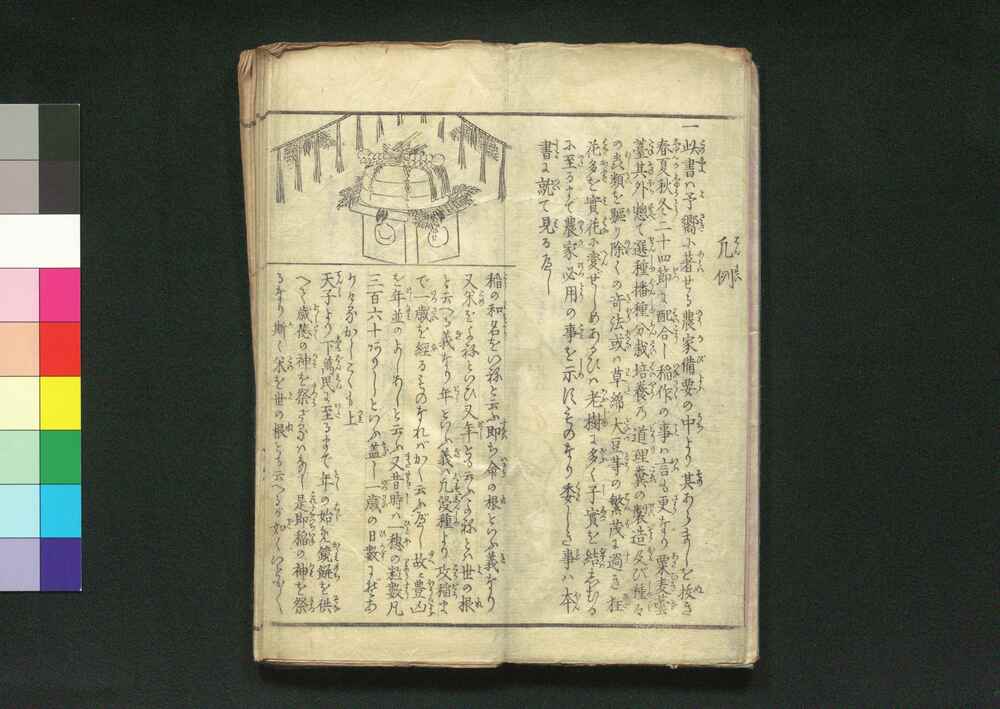 凡例
一此書ハ予嚮に著せる農家備要の中より其あらましを抜き
春夏秋冬二十四節に配合し稲作の事ハ言も更なり粟麦蕓
薹其外惣て選種播種分栽培養の道理糞の製造及び種々
の虫類を駆り除くの奇法或ハ草綿大豆等の繁茂に過き狂
花多を實花に變せしめあるひハ老樹に多く子實を結しむる
に至るまで農家必用の事を示すものなり委しき事ハ本
書に就て見るべし
稲の和名をいねと云ふ即ち命の根といふ義なり
又米をよねといひ又年とも云ふよねとハ世の根
と云へる義なり年といふ義ハ凡穀種より攻稲ま
で一歳を経るものなれバかく云ふべし故に豊凶
を年並のよしあしと云ふ又昔時ハ一穂の粒数凡
三百六十ありしといふ蓋し一歳の日数に
かしこくも上
天子より下萬民に至るまで年の始め鏡餅を供
へて歳徳の神を祭らざるハなし是即稲の神を祭
るなり斯く米を世の根とも云へる如く